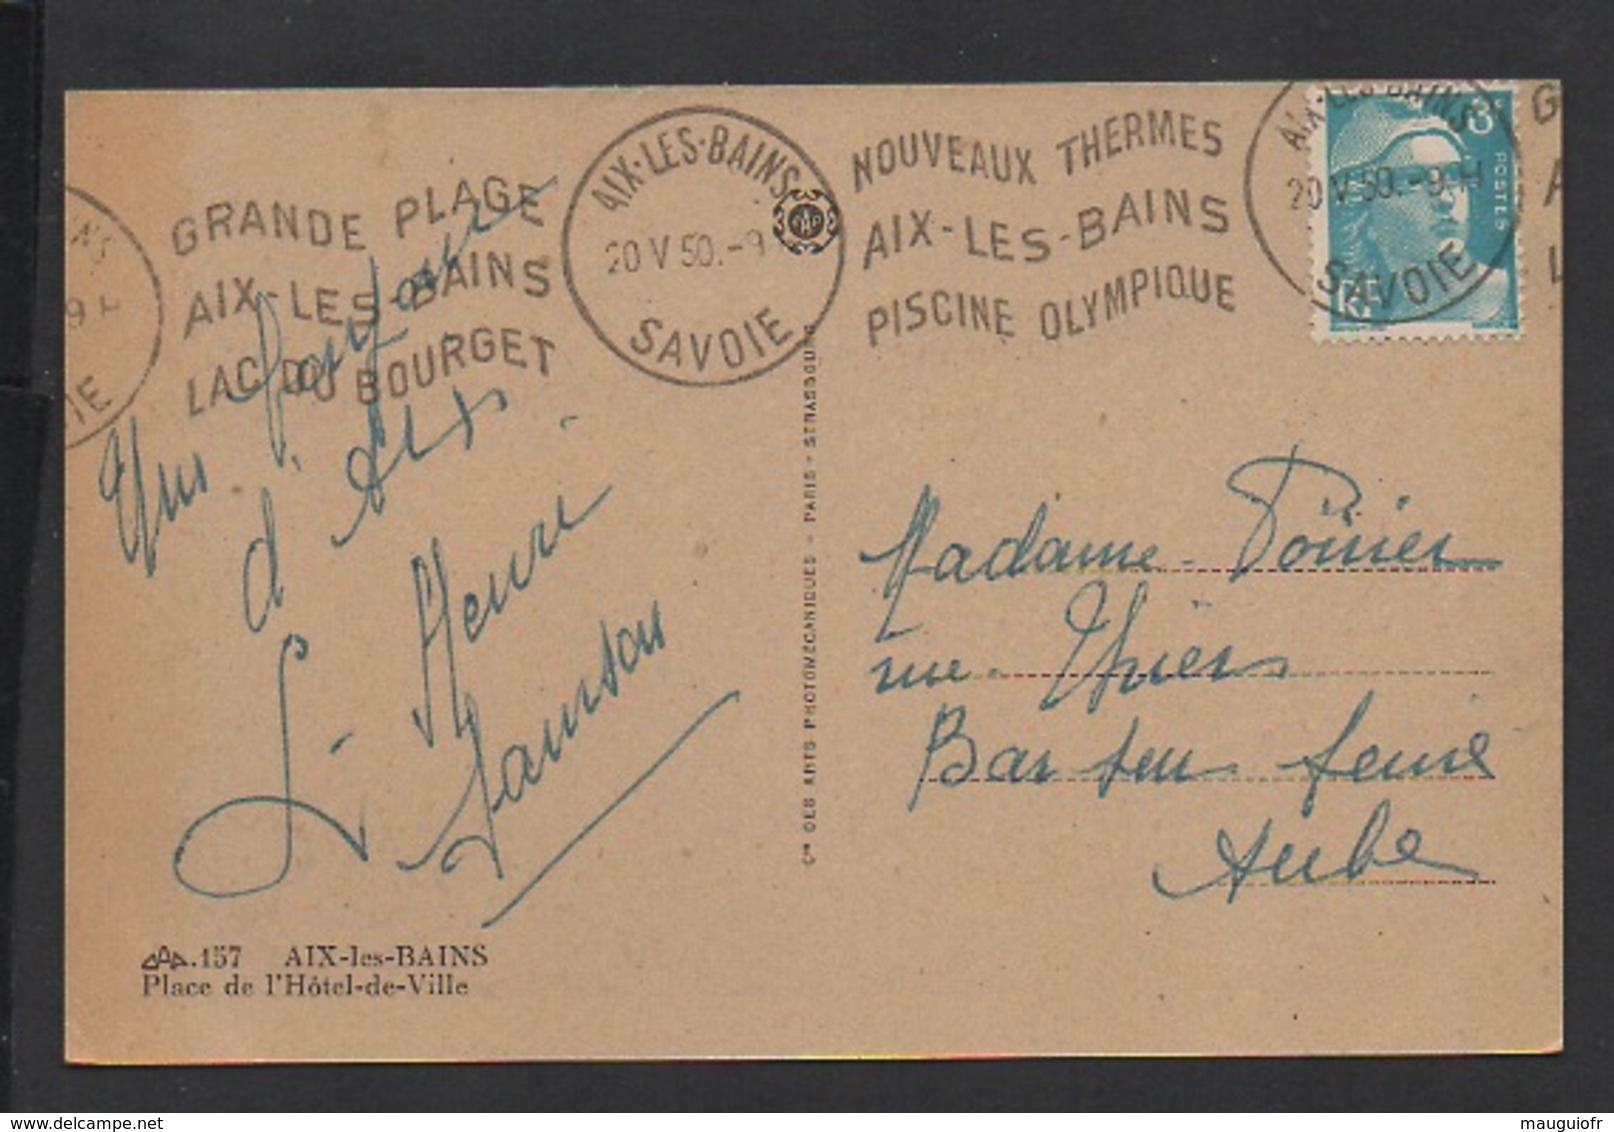 GRANDE PLAGE
AIX-LES-BAINS
LAC DU BOURGET
AIX-LES-BAINS
20 V 50.-9
SAVOIE
NOUVEAUX THERMES
AIX-LES-BAINS
PISCINE OLYMPIQUE
AIX-LES-BAINS
20 V 50.-9 H
SAVOIE
3F
POSTES
RF
INS
9 H
IE
G
A
L
CAP
Un bonjour
d'Aix
Henri
Cie DES ARTS PHOTOMECANIQUES - PARIS - STRASBOURG
Madame Poirier
rue Thiers
Bar sur Seine
Aube
CAP.157 AIX-les-BAINS
Place de l'Hôtel-de-Ville
www.delcampe.net
mauguiofr